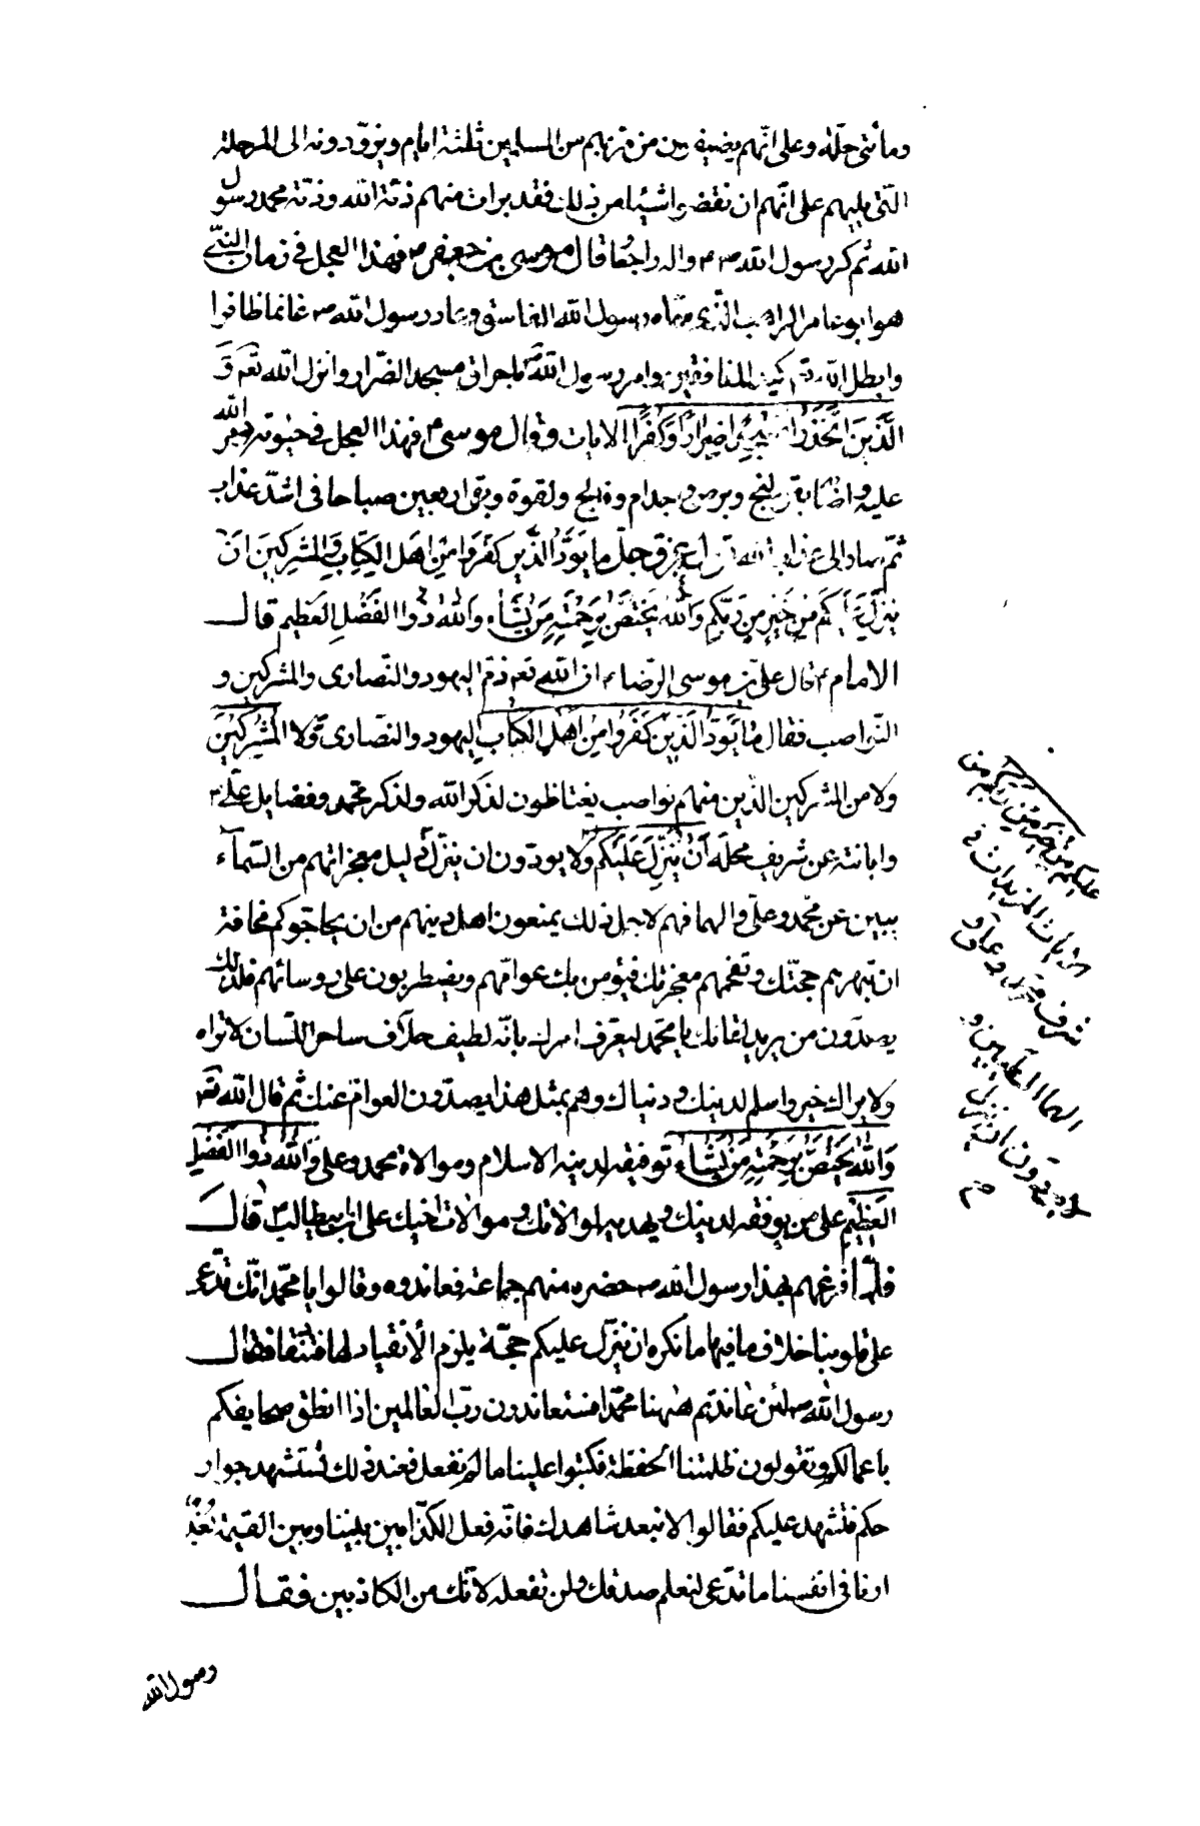 ومأتى حلة وعلى انهم يضيفون من مر بهم من المسلمين ثلثة ايام ويزودونه الى المرحلة
التى يليهم على انهم ان نقضوا شيئا من ذلك فقد برات منهم ذمة الله وذمة محمد رسول
الله ثم كر رسول الله ص راجعا قال موسى بن جعفر ع فهذا العجل فى زمان النبى
هو ابو عامر الراهب الذى سماه رسول الله الفاسق وعاد رسول الله ص غانما ظافرا
وابطل الله كيد المنافقين وامر رسول الله باحراق مسجد الضرار وانزل الله تعم وَ
الَّذينَ اتَّخَذُوا مَسْجِدًا ضِرارًا وَكُفْرًا الايات وقال موسى ع فهذا العجل فى حيوته دمر الله
عليه واصابه بقولنج وبرص وجذام وفالج ولقوة وبقى اربعين صباحا فى اشد عذاب
ثم صاد الى عذاب الله قوله عز وجل ما يَوَدُّ الَّذينَ كَفَرُوا مِنْ اَهْلِ الكِتابِ وَلا المُشْرِكينَ اَنْ
يُنَزَّلَ عَلَيْكُمْ مِنْ خَيْرٍ مِنْ رَبِّكُمْ وَاللهُ يَخْتَصُّ بِرَحْمَتِهِ مَنْ يَشاءُ وَاللهُ ذُوا الفَضْلِ العَظيمِ قال
الامام ع قال على بن موسى الرضا ع ان الله تعم ذم اليهود والنصارى والمشركين و
النواصب فقال ما يَوَدُّ الَّذينَ كَفَرُوا مِنْ اَهْلِ الكِتابِ اليهود والنصارى وَلا المُشْرِكينَ
ولا من المشركين الذين منهم نواصب يغتاظون لذكر الله ولذكر محمد وفضايل على ع
وابانته عن شريف محله اَنْ يُنَزَّلَ عَلَيْكُمْ ولا يودون ان ينزل دليل معجزاتهم من السمآء
يبين عن محمد وعلى والهما فهم لاجل ذلك يمنعون اهل دينهم من ان يحاجوكم مخافة
ان تبهرهم حجتك وتفحمهم معجزتك فيؤمن بك عوامهم ويضطربون على روسائهم فلذلك
يصدون من يريد لقائك يا محمد ليعرف امرك بانه لطيف خلاف ساحر اللسان لا تراه
ولا يراك خير واسلم لدينك ودنياك وهم بمثل هذا يصدون العوام عنك ثم قال الله تعم
وَاللهُ يَخْتَصُّ بِرَحْمَتِهِ مَنْ يَشاءُ توفيقه لدينه الاسلام وموالاة محمد وعلى وَاللهُ ذُوا الفَضْلِ
العَظيمِ على من يوفقه لدينك ويهديه لموالاتك وموالات اخيك على ابن ابيطالب ع قال
فلما قرعهم بهذا رسول الله ص حضره منهم جماعة فعاندوه وقالوا يا محمد انك تدعى
على قلوبنا خلاف ما فيها ما نكره ان ينزل عليكم حجة يلزم الانقياد لها فننقاد فقال
رسول الله ص لئن عاندتم ههنا محمدا فستعاندون رب العالمين اذا انطق صحايفكم
باعمالكم وتقولون ظلمتنا الحفظة فكتبوا علينا ما لم نفعل فعند ذلك تستشهد جوار
حكم فتشهد عليكم فقالوا لا تبعد شاهدك فانه فعل الكذابين بيننا وبين القيمة بُعْدٌ
ارنا فى انفسنا ما تدعى لنعلم صدقك ولن تفعله لانك من الكاذبين فقال
رسول الله
عليكم من خير من ربكم من
الايات المزيدات فى
شرف محمد وعلى و
الهما الطيبين و
لا يودون ان ينزل